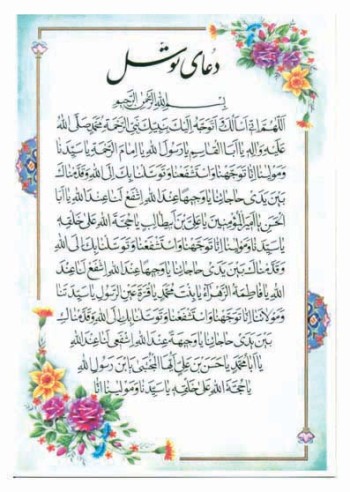 دعای توسل
بِسْمِ اللهِ الرَّحْمنِ الرَّحِيمِ
اَللّهُمَّ اِنّى اَسْاَلُكَ وَاَتَوَجَّهُ اِلَيْكَ بِنَبِيِّكَ نَبِىِّ الرَّحْمَةِ مُحَمَّدٍ صَلَّى اللهُ
عَلَيْهِ وَالِهِ يا اَبَا الْقاسِمِ يا رَسُولَ اللهِ يا اِمامَ الرَّحْمَةِ يا سَيِّدَنا
وَمَوْلينا اِنّا تَوَجَّهْنا وَاسْتَشْفَعْنا وَتَوَسَّلْنا بِكَ اِلَى اللهِ وَقَدَّمْناكَ
بَيْنَ يَدَىْ حاجاتِنا يا وَجيهاً عِنْدَ اللهِ اِشْفَعْ لَنا عِنْدَ اللهِ يا اَبَا
الْحَسَنِ يا اَميرَ الْمُؤْمِنينَ يا عَلِىَّ بْنَ اَبيطالِبٍ يا حُجَّةَ اللهِ عَلى خَلْقِهِ
يا سَيِّدَنا وَمَوْلينا اِنّا تَوَجَّهْنا وَاسْتَشْفَعْنا وَتَوَسَّلْنا بِكَ اِلَى اللهِ
وَقَدَّمْناكَ بَيْنَ يَدَىْ حاجاتِنا يا وَجيهاً عِنْدَ اللهِ اِشْفَعْ لَنا عِنْدَ
اللهِ يا فاطِمَةُ الزَّهْراَّءُ يا بِنْتَ مُحَمَّدٍ يا قُرَّةَ عَيْنِ الرَّسُولِ يا سَيِّدَتَنا
وَمَوْلاتَنا اِنّا تَوَجَّهْنا وَاسْتَشْفَعْنا وَتَوَسَّلْنا بِكِ اِلَى اللهِ وَقَدَّمْناكِ
بَيْنَ يَدَىْ حاجاتِنا يا وَجيهَةً عِنْدَ اللهِ اِشْفَعى لَنا عِنْدَ اللهِ
يا اَبا مُحَمَّدٍ يا حَسَنَ بْنَ عَلِىٍّ اَيُّهَا الْمُجْتَبى يَا بْنَ رَسُولِ اللهِ
يا حُجَّةَ اللهِ عَلى خَلْقِهِ يا سَيِّدَنا وَمَوْلينا اِنّا